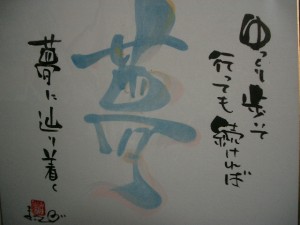 ゆっくり歩いて
行っても続ければ
夢
夢に辿り着く